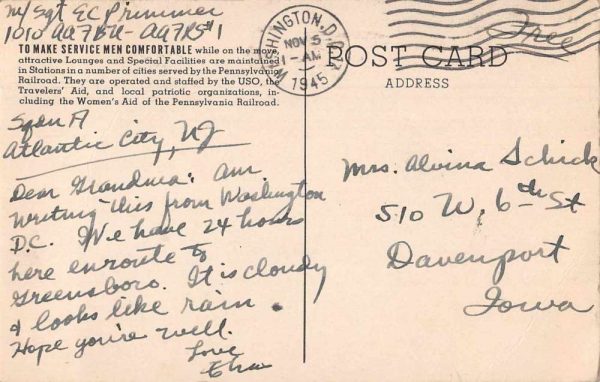 M/Sgt EC Primmer
1010 AAFBU - AAFRS #1
TO MAKE SERVICE MEN COMFORTABLE while on the move,
attractive Lounges and Special Facilities are maintained
in Stations in a number of cities served by the Pennsylvania
Railroad. They are operated and staffed by the USO, the
Travelers' Aid, and local patriotic organizations, in-
cluding the Women's Aid of the Pennsylvania Railroad.
Sqdn A
Atlantic City, NJ
Dear Grandma: Am
writing this from Washington
D.C. We have 24 hours
here enroute to
Greensboro. It is cloudy
& looks like rain.
Hope you're well.
Love
WASHINGTON, D.C.
NOV 5
1-AM
1945
Free
POST CARD
ADDRESS
Mrs. Alvina Schick
510 W. 6th St
Davenport
Iowa